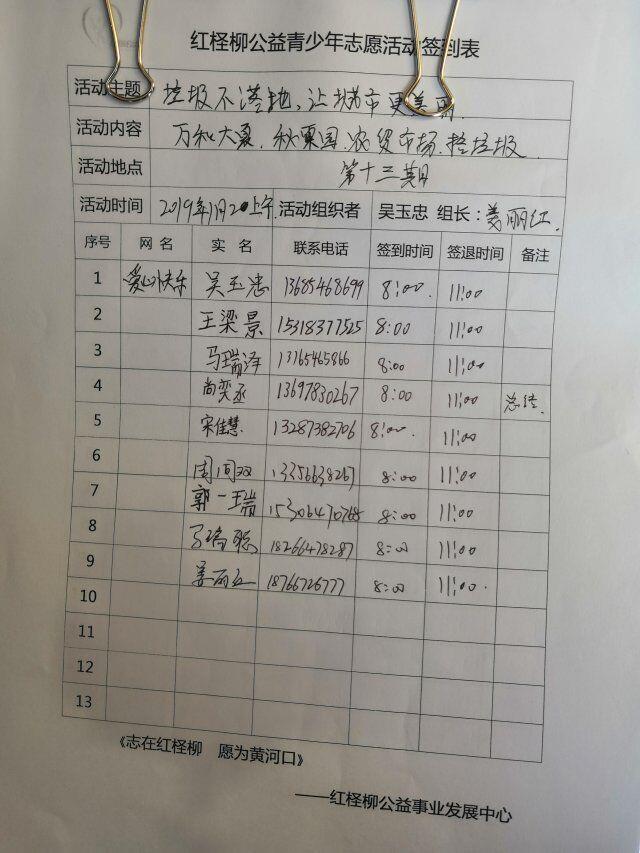 红柽柳公益青少年志愿活动签到表
活动主题 垃圾不落地,让城市更美丽.
活动内容 万和大厦.秋果园.农贸市场.捡垃圾.
活动地点 第十三期
活动时间 2019年11月2日上午 活动组织者 吴玉忠 组长:姜丽红.
序号 网名 实名 联系电话 签到时间 签退时间 备注
1 爱心快乐 吴玉忠 13685468699 8:00. 11:00
2 王梁景 15318377525 8:00 11:00
3 马瑞泽 8:00 11:00
4 尚奕丞 13697830267 8:00 11:00 总结.
5 宋佳慧. 13287382706 8:00. 11:00
6 周同双 13356638267 8:00 11:00
7 郭一瑞 15306470768 8:00 11:00
8 马瑞聪 18266478287 8:00 11:00
9 姜丽红 18766726777 8:00 11:00.
10
11
12
13
《志在红柽柳 愿为黄河口》
——红柽柳公益事业发展中心